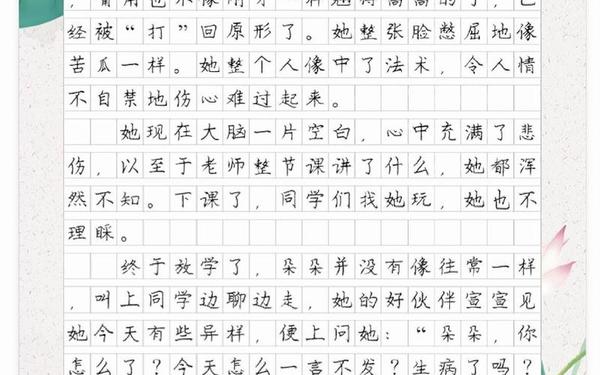 经被“打”回原形了。她整张脸憋屈地像
苦瓜一样。她整个人像中了法术，令人情
不自禁地伤心难过起来。
她现在大脑一片空白，心中充满了悲
伤，以至于老师整节课讲了什么，她都浑
然不知。下课了，同学们找她玩，她也不
理睬。
终于放学了，朵朵并没有像往常一样
，叫上同学边聊边走，她的好伙伴宣宣见
她今天有些异样，便上问她：“朵朵，你
怎么了？今天怎么一言不发？生病了吗？